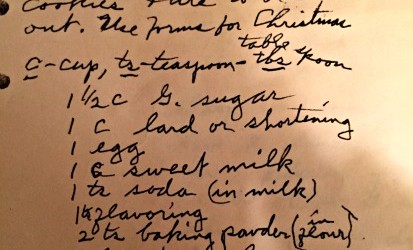 Cookies
out. Use forms for Christmas
c-cup, ts-teaspoon-tbs tablespoon
1 1/2 c G. sugar
1 c lard or shortening
1 egg
1 c sweet milk
1 ts soda (in milk)
1 flavoring
2 ts baking powder (in flour).